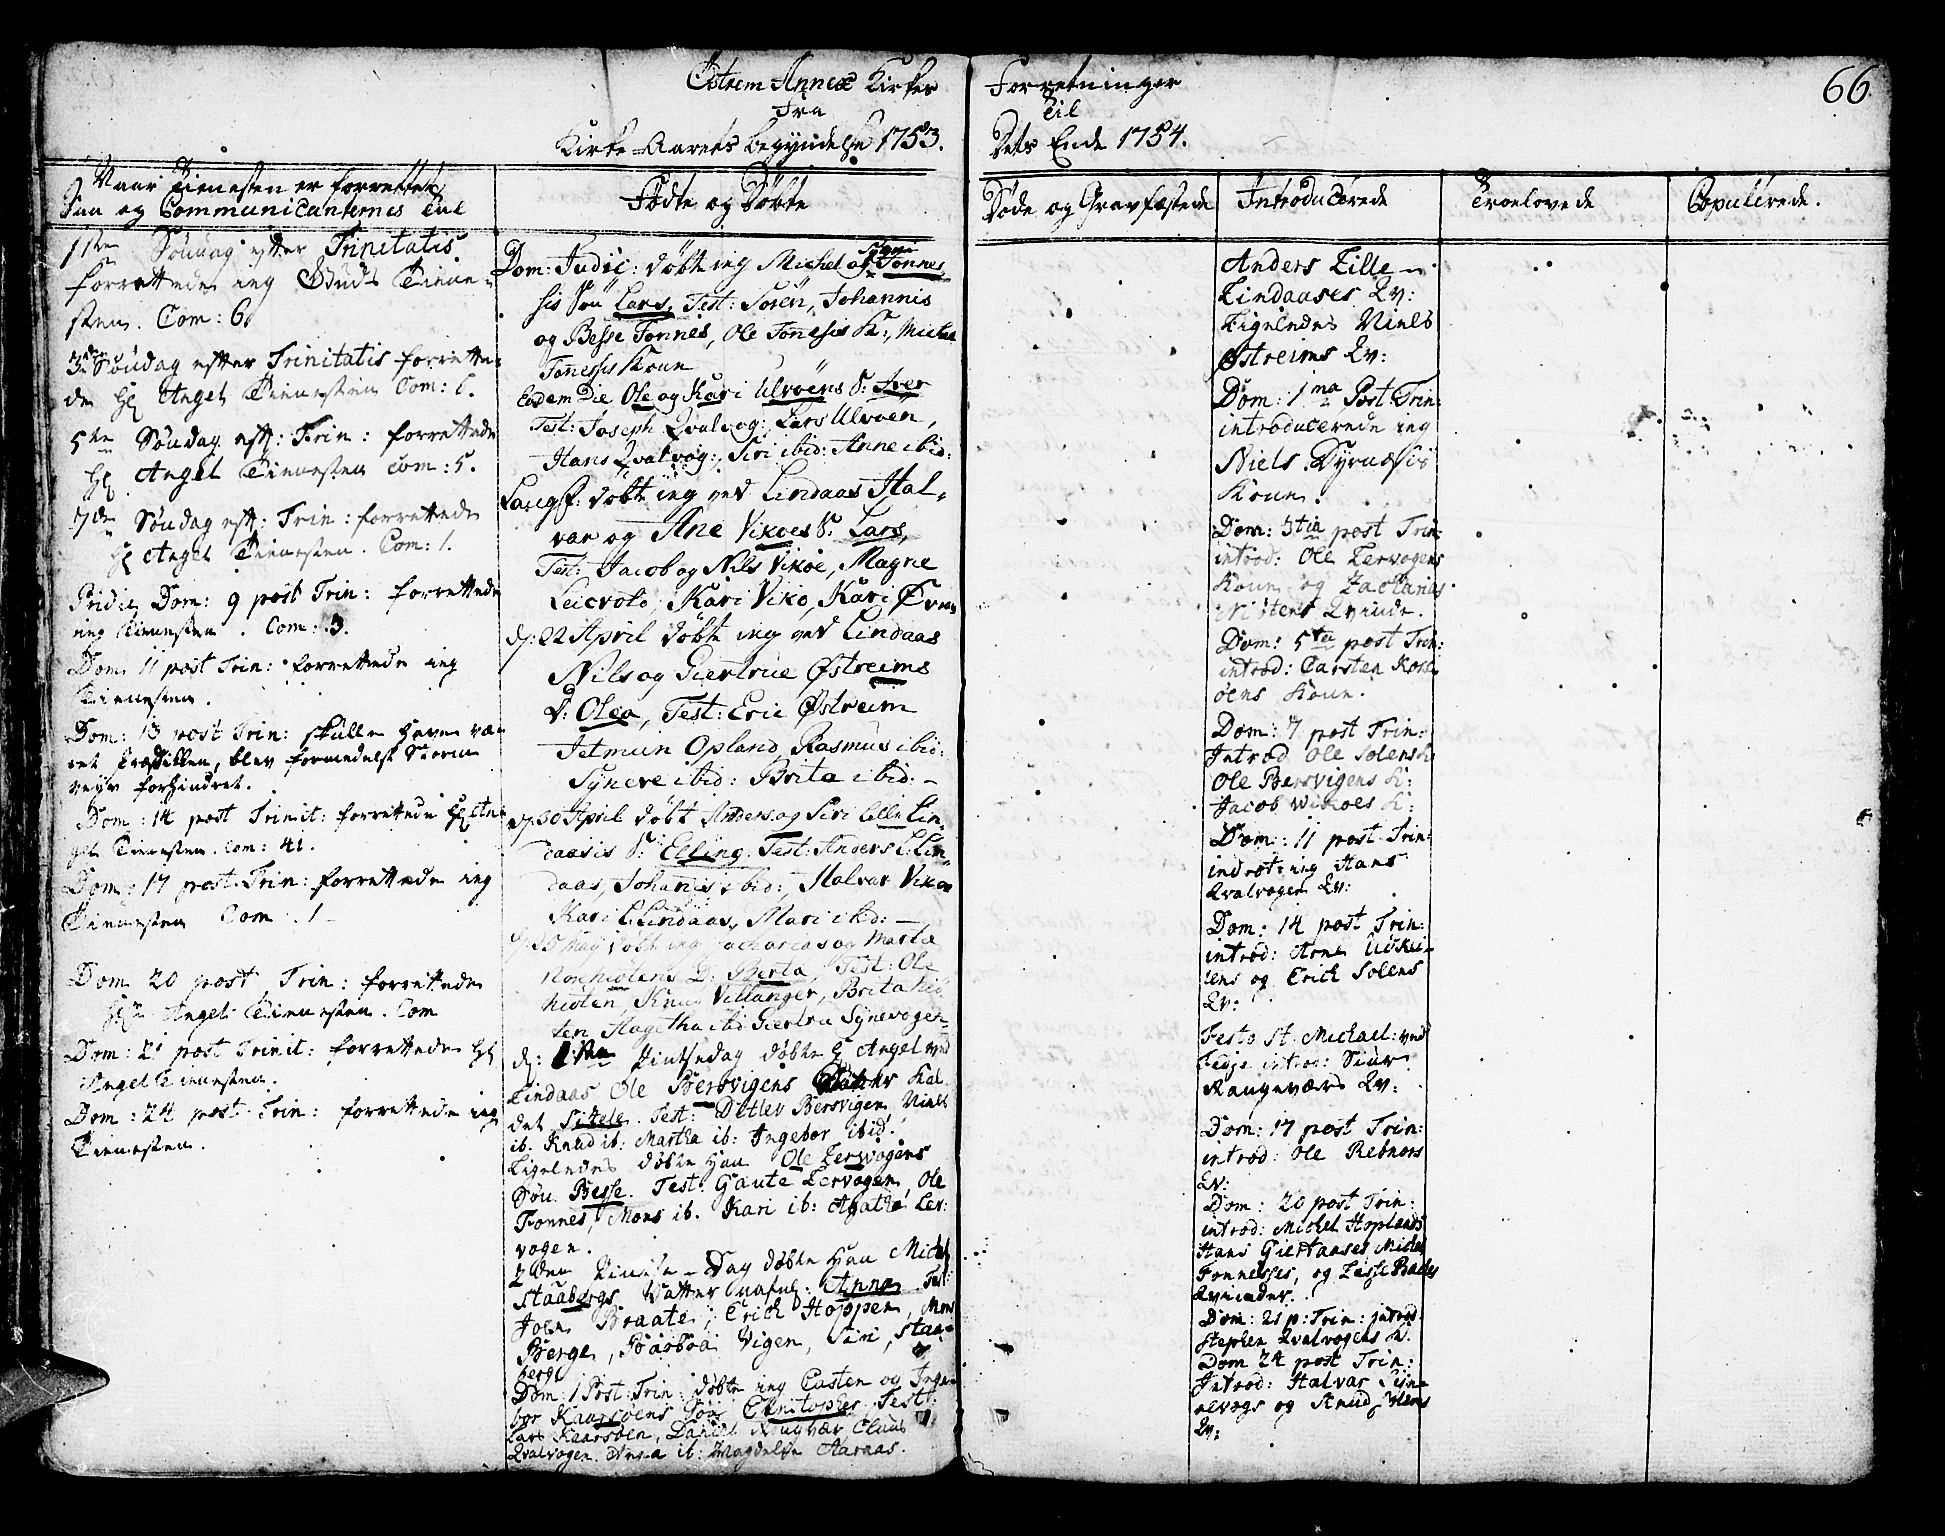 Østrem Annex Kirkes Forretninger
Fra Til
Kirke-Aarets begyndelse 1753. Dets Ende 1754.
66.
Naar Tienesten er forrettet,
og Communicanternes Tal
1ste Søndag efter Trinitatis
forrettede ieg Guds Tiene-
sten. Com: 6.
3de Søndag efter Trinitatis forrette-
de Hr Angel Tienesten Com: 6.
5te Søndag eft: Trin: forrettede
Hr. Angel Tienesten Com: 5.
7de Søndag eft: Trin: forrettede
Hr Angel Tienesten. Com: 1.
Pridie Dom: 9 post Trin: forrettede
ieg Tienesten. Com: 3.
Dom 11 post Trin: forrettede ieg
Tienesten.
Dom: 13 post Trin: skulle have væ-
ret Tienesten, blev formedelst Storm
veyr forhindret.
Dom: 14 post Trinit: forrettede Hr An-
gel Tienesten. Com: 41.
Dom: 17 post Trin: forrettede ieg
Tienesten Com. 1
Dom 20 post Trin: forrettede
Hr Angel Tienesten. Com
Dom: 21 post Trinit: forrettede Hr
Angel Tienesten.
Dom: 24 post Trin: forrettede ieg
Tienesten.
Fødte og Døbte
Dom: Judic: døbte ieg Michel og Tonnes-
sis Søn Lars, Test: Søren, Johannis
og Besse Fonnes, Ole Fonnesis K:, Michel
Fonnessis Kone
Eodem Die Ole og Kari Ulvøens S: Iver
Test: Joseph Qvalvog:, Lars Ulvøen,
Hans Qvalvog:, Siri ibid: Anne ibid:
Langf: døbte ieg ved Lindaas Hal-
var og Ane Vikøes S. Lars,
Test: Jacob og Nils Vikøe, Magne
Kari Vikø, Kari
d: 22 April døbte ieg ved Lindaas
Nils og Giertrue Østreims
D: Olea, Test: Eric Østreim
Jetmun Opland, Rasmus ibid:
Syneve ibid: Brita ibid:
d. 30 April døbt Anders og Siri Lille Lin-
daasis S: Elling. Test: Anders L: Lin-
daas, Johanis ibid:, Halvar Vikøe
Kari L: Lindaas, Mari ibid:
d. 25 May døbte ieg Zacharias og Marta
D: Berta, Test: Ole
Knud Villanger, Brita
Agetha ibid Giertru Synevogen
d: 1ste Pintsedag døbte Hr Angel ved
Lindaas Ole Bersvigens Datter kal
det Sittele. Test: Detlev Bersvigen, Niels
ib. Knud ib: Martha ib: Ingebor ibid:
Ligeledes døbte Han Ole Lervogens
Søn Besse. Test: Gaute Lervogen, Ole
Fonnes, Mons ib. Kari ib: Agatha Ler-
vogen.
2den Pintse-Dag døbte Han Michel
Staabergs Datter nafnl: Anna. Test:
Joen Braate, Erich Hoppen, Mons
Berge, Vigen, Siri, Staa-
berg
Dom: 1 Post: Trin: døbte ieg Casten og Inge-
bor Kaarsøens Søn Christopher, Test:
Lars Kaarsøen, Daniel Rougvær, Claus
Qvalvogen. Anna ib: Magdelse Aaraas.
Døde og Gravfæstede
Introducerede
Anders Lille
Lindaases Qv:
Ligeledes Niels
Østreims Qv:
Dom: 1ma Post: Trin:
introducerede ieg
Niels Dyrnessis
Kone.
Dom: 3tia post Trin:
introd: Ole Lervogens
Kone og Zacharias
Qvinde.
Dom: 5ta post Trin:
introd: Carsten Kors-
øens Kone.
Dom: 7 post Trin:
Introd Ole Solens K:
Ole Bersvigens K:
Jacob Wikøes K:
Dom: 11 post Trin:
indrot: ieg Hans
Qvalvogen Qv:
Dom: 14 post Trin:
introd: Arne
og Erich Solens
Qv:
Festo St. Michael: ved
Fedje introd: Siur
Rangeværs Qv:
Dom: 17 post Trin:
introd: Ole Rebnors
Qv:
Dom: 20 post Trin:
introd: Michel Hoplands
Hans Giertaases Michel
Fonnesses, og
Qvinder.
Dom: 21 p: Trin: introd:
Stephen Qvalvogens K:
Dom 24 post Trin:
Introd: Halvar
og Knud
Qv:
Troelovede
Copulerede.